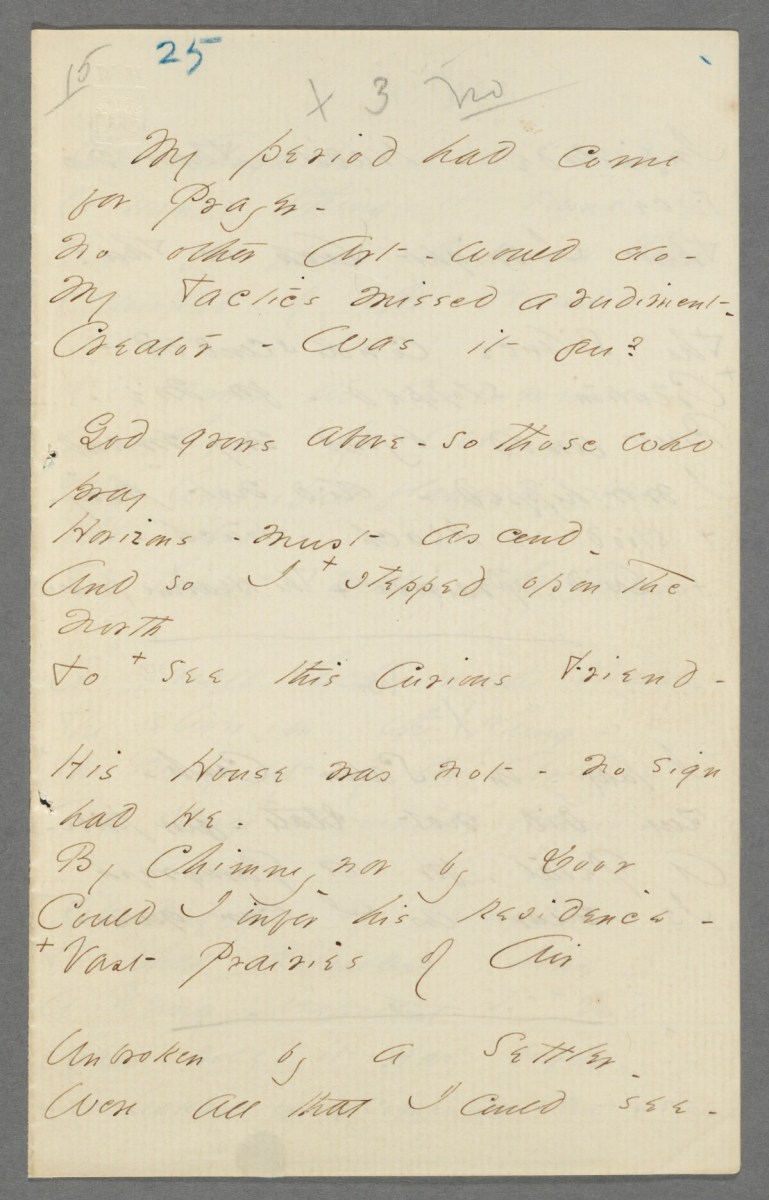 15 25
x 3 no
My period had come
for Prayer -
No other Art - would do -
My Tactics missed a rudiment -
Creator - Was it you?
God grows above - so those who
pray
Horizons - must ascend -
And so I + stepped opon the
North
To + see this Curious Friend -
His House was not - no sign
had He -
By Chimney, nor by Door
Could I infer his Residence -
+ Vast Prairies of Air
Unbroken by a Settler -
Were all that I could see -